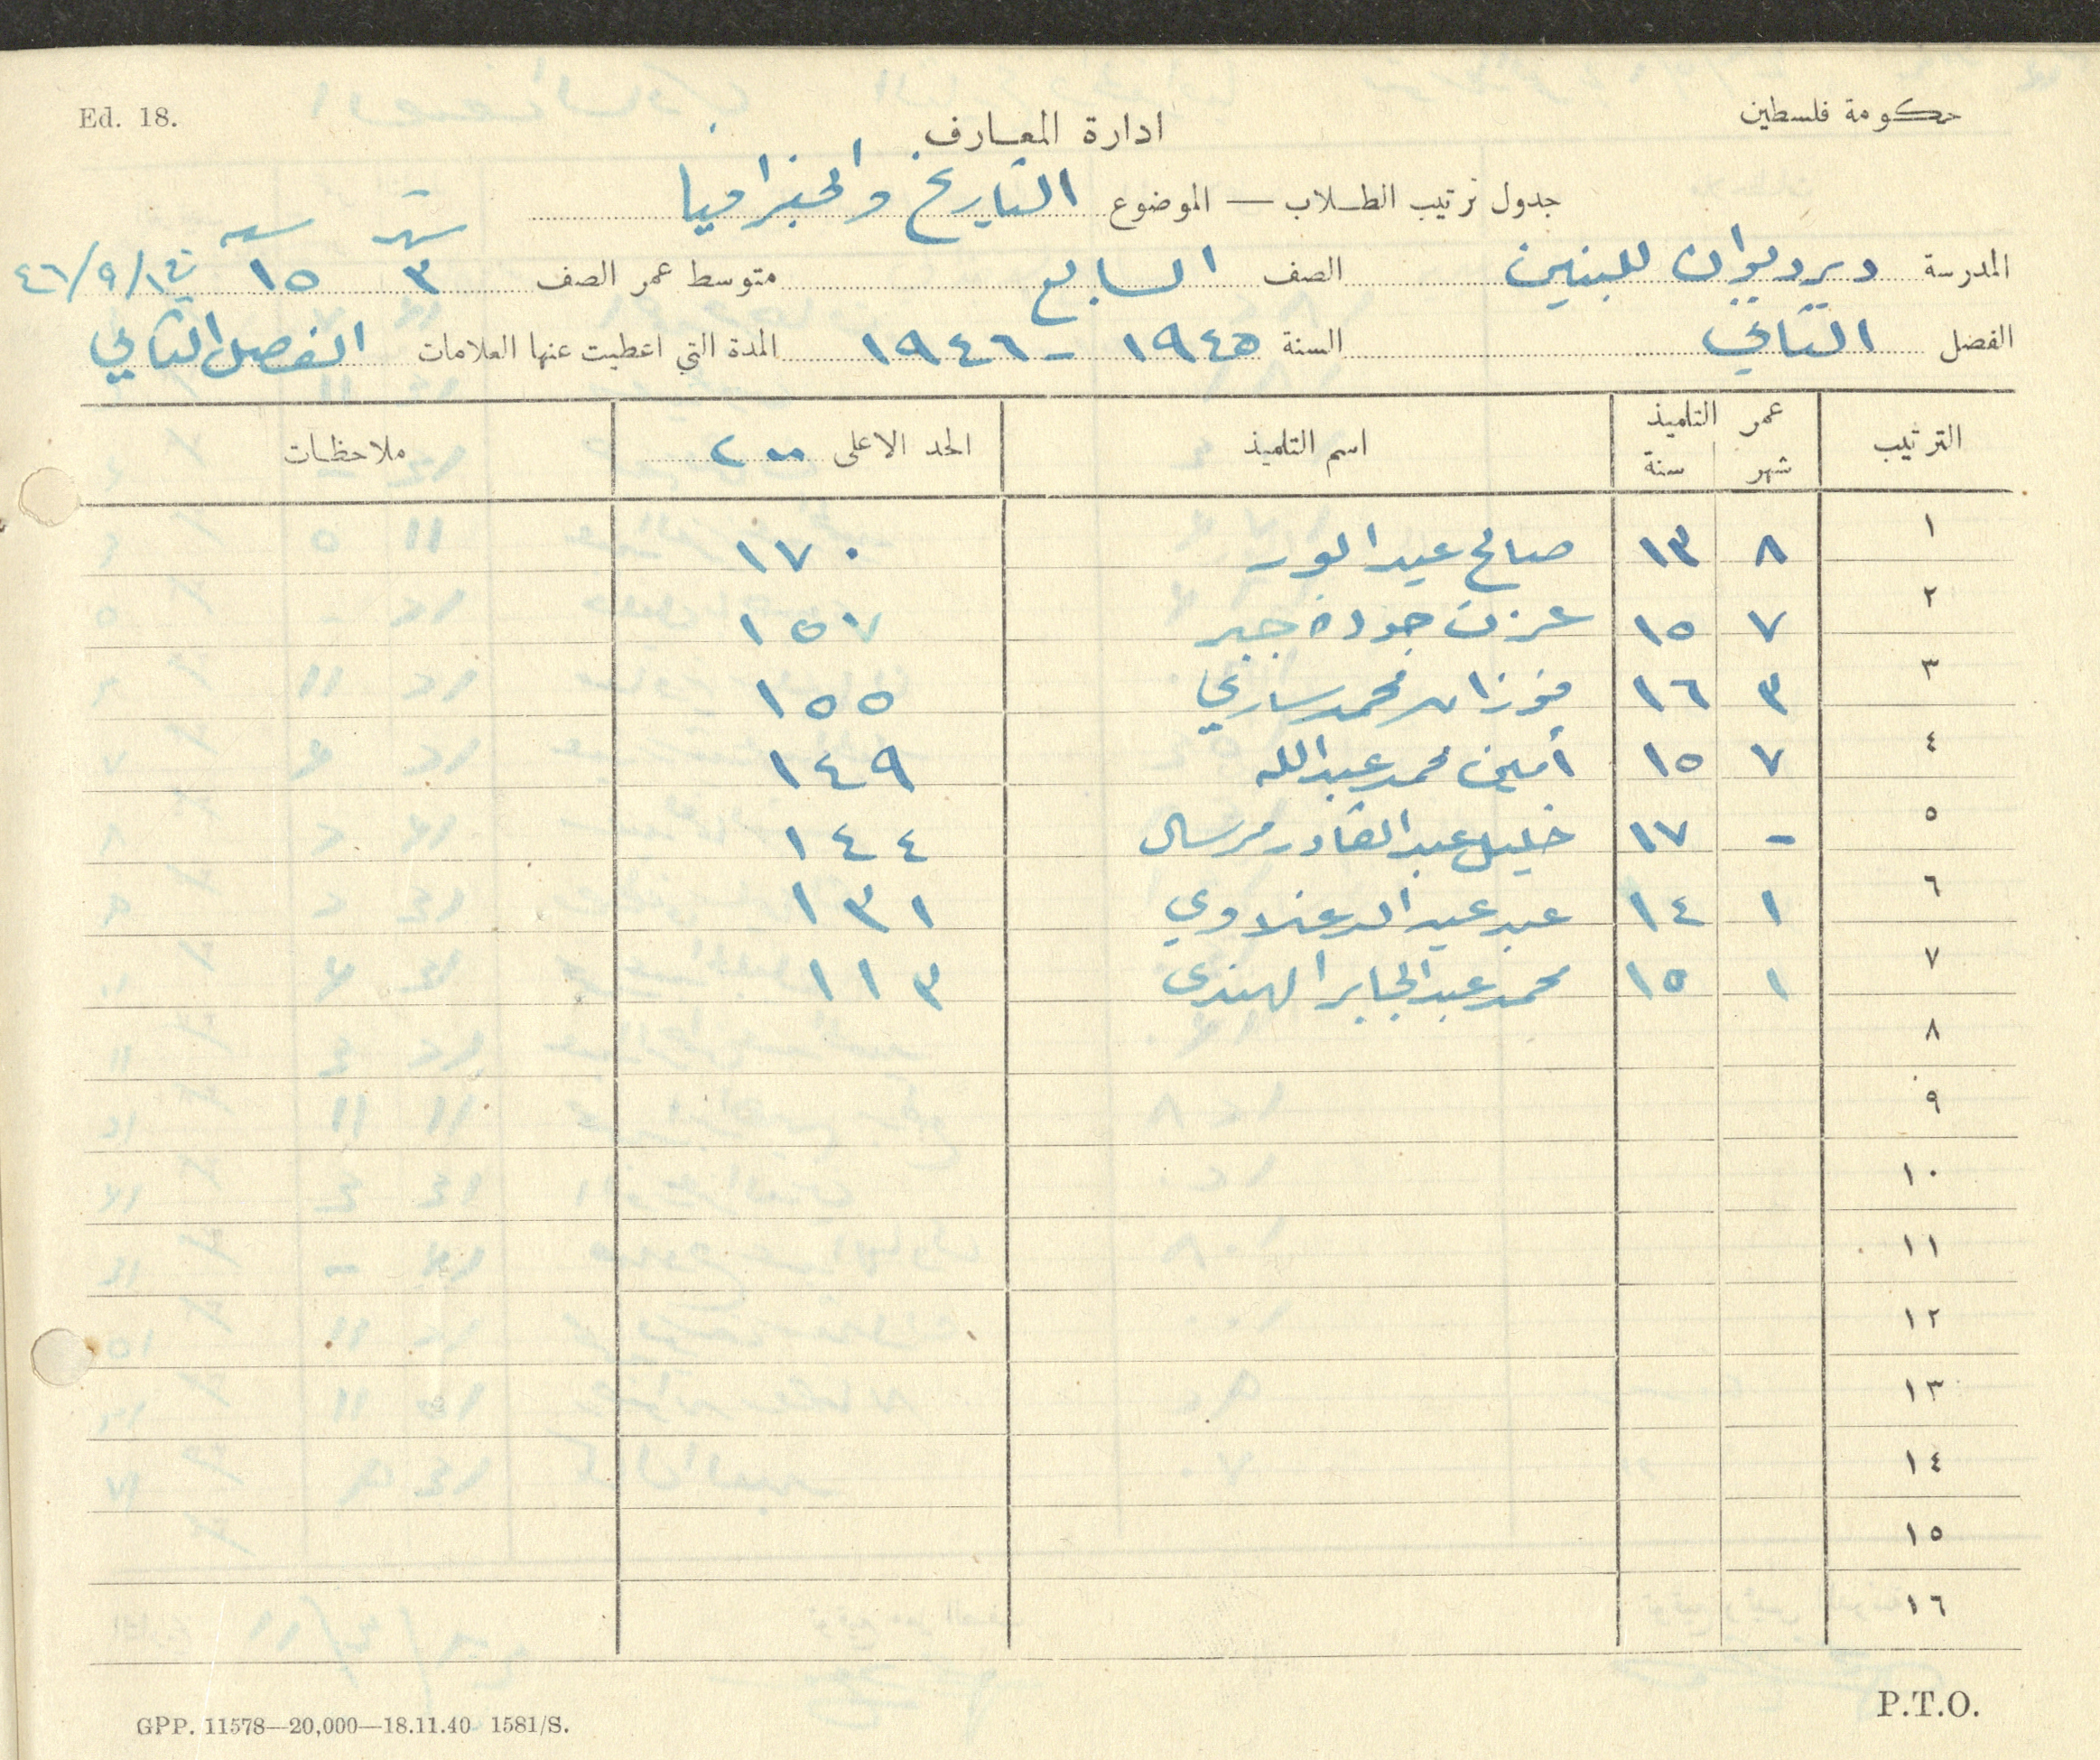 Ed. 18.
حكومة فلسطين
ادارة المعارف
جدول ترتيب الطلاب — الموضوع التاريخ والجغرافيا
المدرسة ديرديوان للبنين الصف السابع متوسط عمر الصف شهر ٣ سنه ١٥ في ١/٩/٤٦
الفصل الثاني السنة ١٩٤٥ - ١٩٤٦ المدة التي اعطيت عنها العلامات الفصل الثاني
الترتيب عمر التلميذ شهر سنة اسم التلميذ الحد الاعلى ٢٠٠ ملاحظات
١ ٨ ١٣ صالح عبد ١٧٠
٢ ٧ ١٥ عزت جوده جبر ١٥٧
٣ ٣ ١٦ فوزان محمد ١٥٥
٤ ٧ ١٥ أمين محمد عبدالله ١٤٩
٥ - ١٧ خليل عبد القادر ١٤٤
٦ ١ ١٤ عبد ١٣١
٧ ١ ١٥ محمد عبدالجابر الهندي ١١٣
٨
٩
١٠
١١
١٢
١٣
١٤
١٥
١٦
P.T.O.
GPP. 11578—20,000—18.11.40 1581/S.